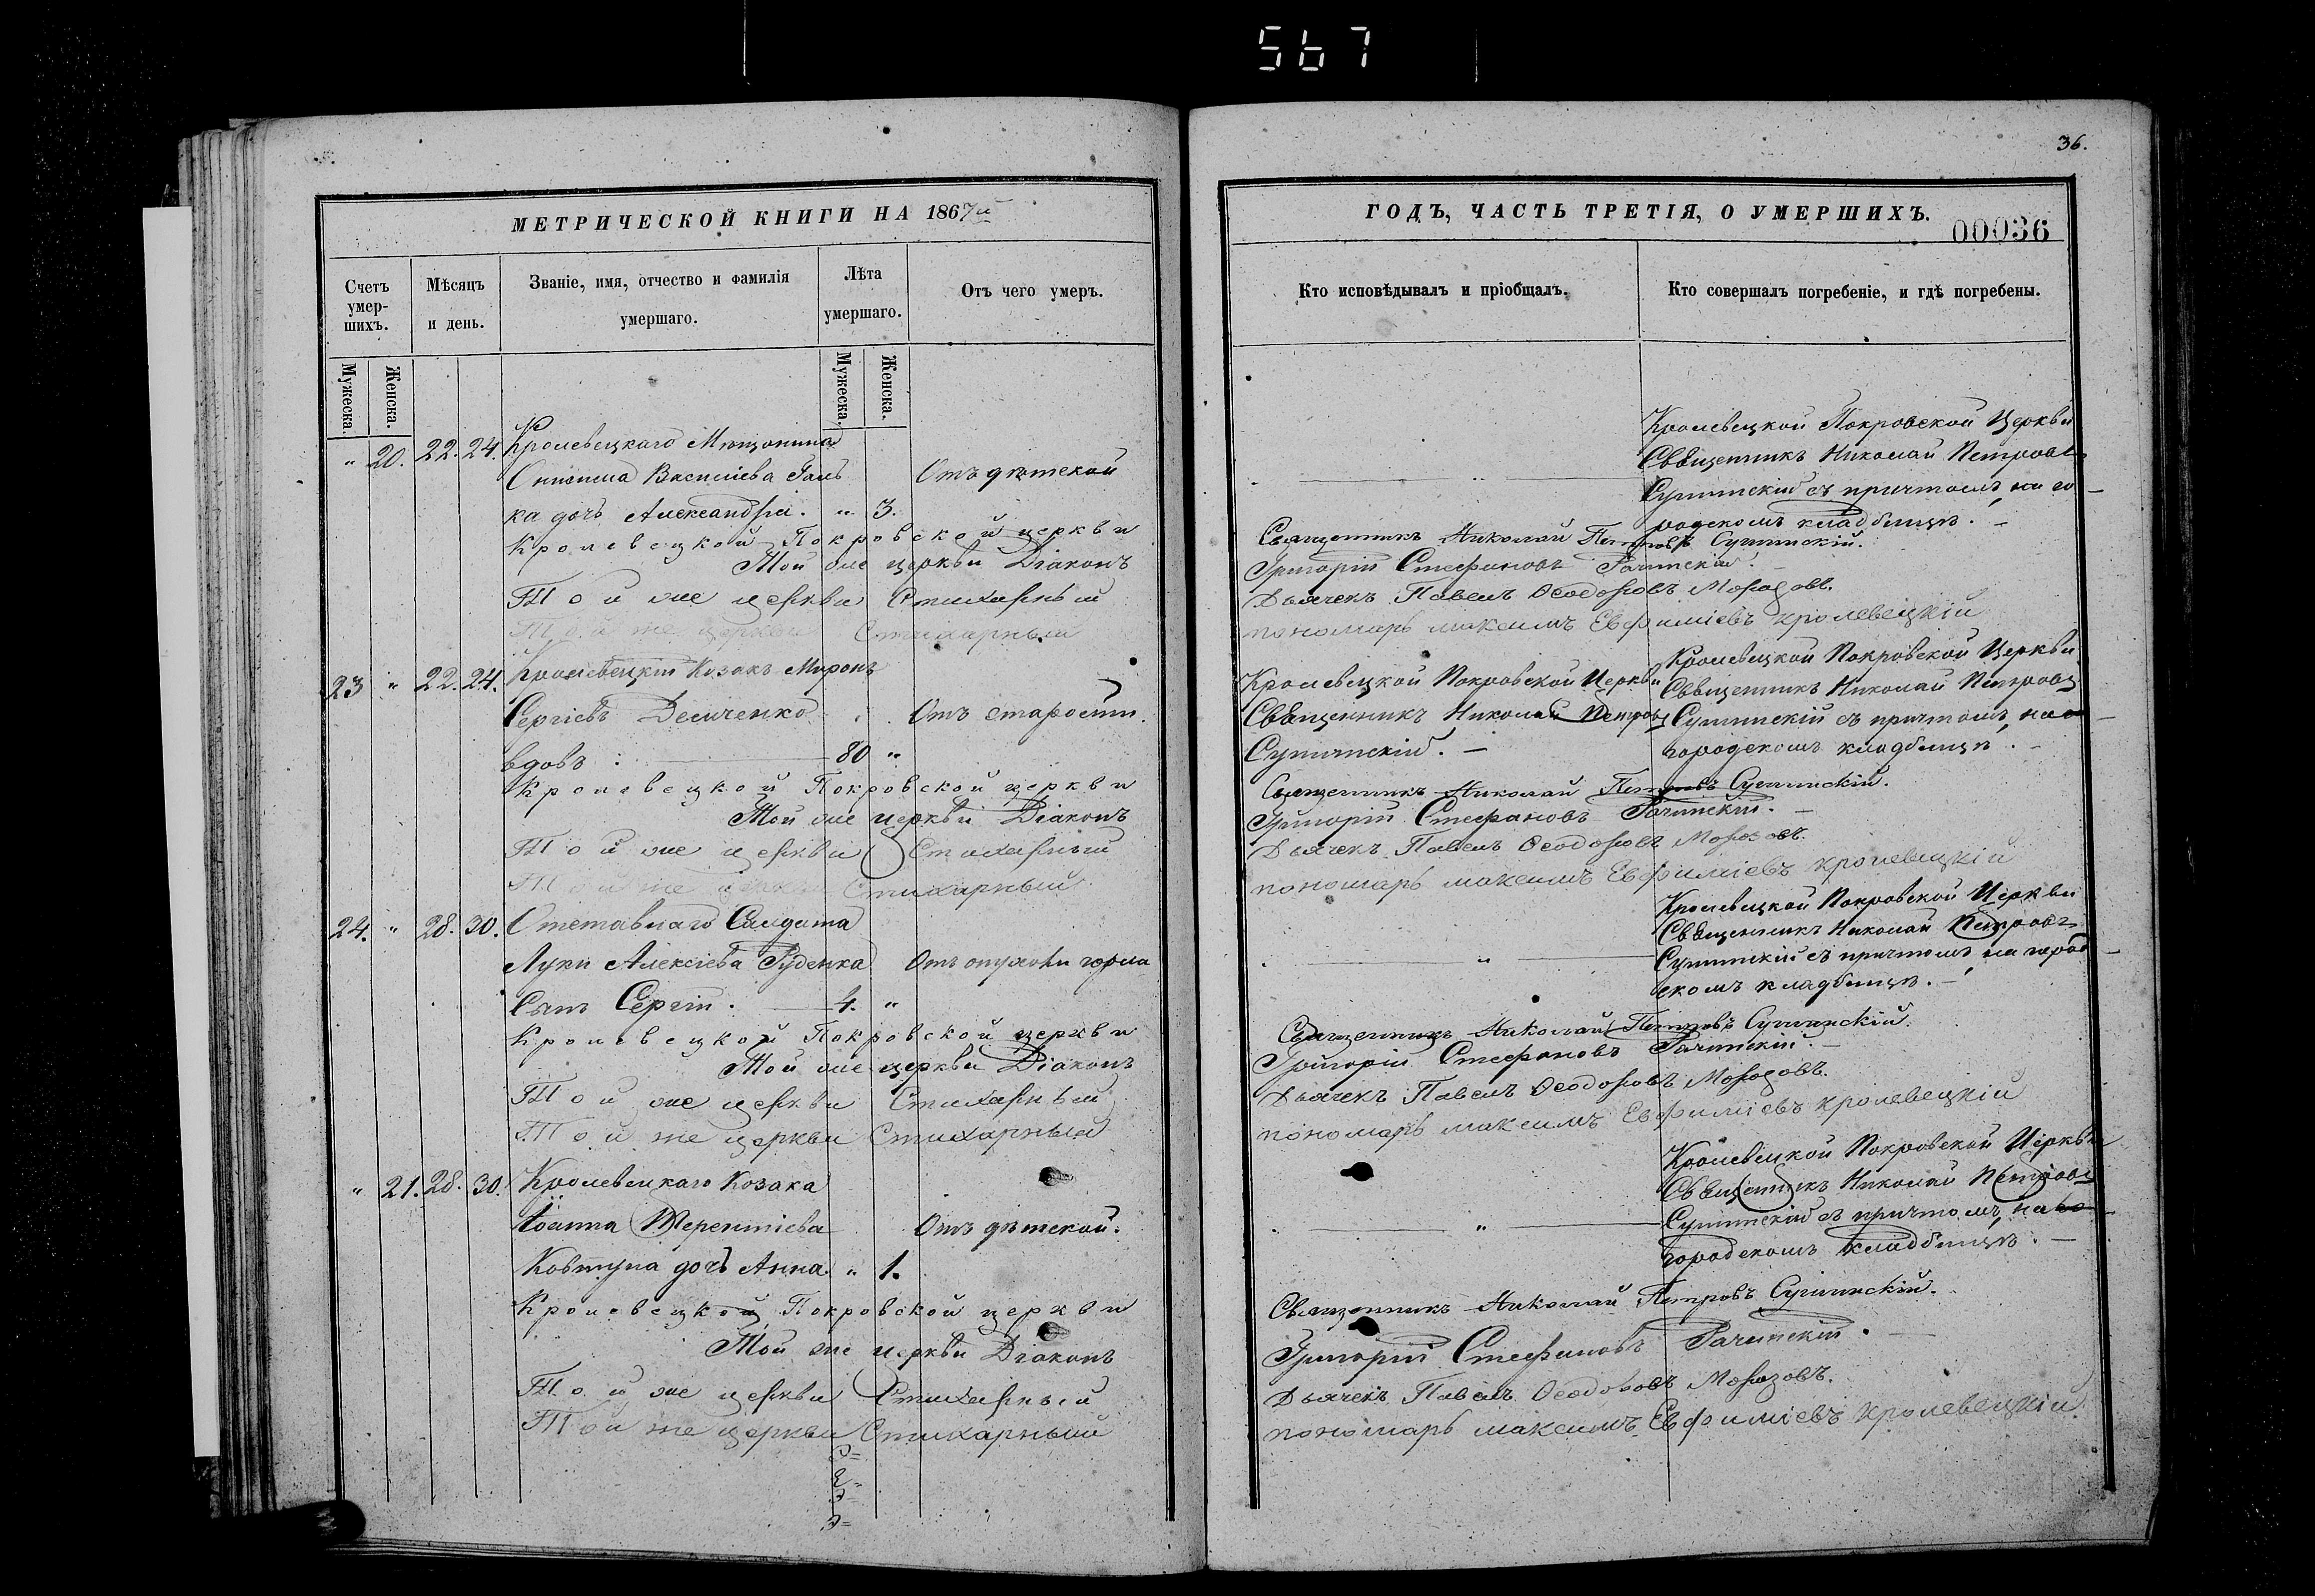 567
МЕТРИЧЕСКОЙ КНИГИ НА 1867й
Счетъ умер-шихъ.
Мѣсяцъ и день.
Званіе, имя, отчество и фамилія умершаго.
Лѣта умершаго.
Отъ чего умеръ.
Мужеска.
Женска.
Мужеска.
Женска.
" 20. 22. 24. Кролевецкаго Мѣщанина
Онисима Васильева Отъ дѣтской
ка дочь Александра. " 3.
Кролевецкой Покровской церкви
Той же церкви Діаконъ
Той же церкви Стихарный
Той же церкви Стихарный
23 " 22. 24. Кролевецкій Козакъ Миронъ
Сергіевъ Демченко Отъ старости.
вдовъ : 80 "
Кролевецкой Покровской церкви
Той же церкви Діаконъ
Той же церкви Стихарный
Той же церкви Стихарный
24. " 28. 30. Отставнаго Солдата
Луки Алексіева Руденка Отъ опухоли горла
Сынъ Сергій. 4. "
Кролевецкой Покровской церкви
Той же церкви Діаконъ
Той же церкви Стихарный
Той же церкви Стихарный
" 21. 28. 30. Кролевецкаго Козака
Іоанна Терентіева Отъ дѣтской.
Ковтуна дочь Анна " 1.
Кролевецкой Покровской церкви
Той же церкви Діаконъ
Той же церкви Стихарный
Той же церкви Стихарный
36.
ГОДЪ, ЧАСТЬ ТРЕТІЯ, О УМЕРШИХЪ.
00036
Кто исповѣдывалъ и пріобщалъ.
Кто совершалъ погребеніе, и гдѣ погребены.
Кролевецкой Покровской Церкви
Священникъ Николай Петровъ
"
Сулимскій съ причтомъ, на го
родскомъ кладбищѣ.
Священникъ Николай Петровъ Сулимскій.
Григорій Стефановъ Рачинскій.
Дьячекъ Павелъ Ѳеодоровъ Морозовъ.
пономарь максимъ Евфиміевъ кролевецкій
Кролевецкой Покровской Церкви
Священникъ Николай Петровъ
Сулимскій.
Кролевецкой Покровской Церкви
Священникъ Николай Петровъ
Сулимскій съ причтомъ, на
городскомъ кладбищѣ.
Священникъ Николай Петровъ Сулимскій.
Григорій Стефановъ Рачинскій.
Дьячекъ Павелъ Ѳеодоровъ Морозовъ.
пономарь максимъ Евфиміевъ кролевецкій
Кролевецкой Покровской Церкви
Священникъ Николай Петровъ
"
Сулимскій съ причтомъ, на город
скомъ кладбищѣ.
Священникъ Николай Петровъ Сулимскій.
Григорій Стефановъ Рачинскій.
Дьячекъ Павелъ Ѳеодоровъ Морозовъ.
пономарь максимъ Евфиміевъ кролевецкій
Кролевецкой Покровской Церкви
Священникъ Николай Петровъ
"
Сулимскій съ причтомъ, на
городскомъ кладбищѣ.
Священникъ Николай Петровъ Сулимскій.
Григорій Стефановъ Рачинскій.
Дьячекъ Павелъ Ѳеодоровъ Морозовъ.
пономарь максимъ Евфиміевъ кролевецкій